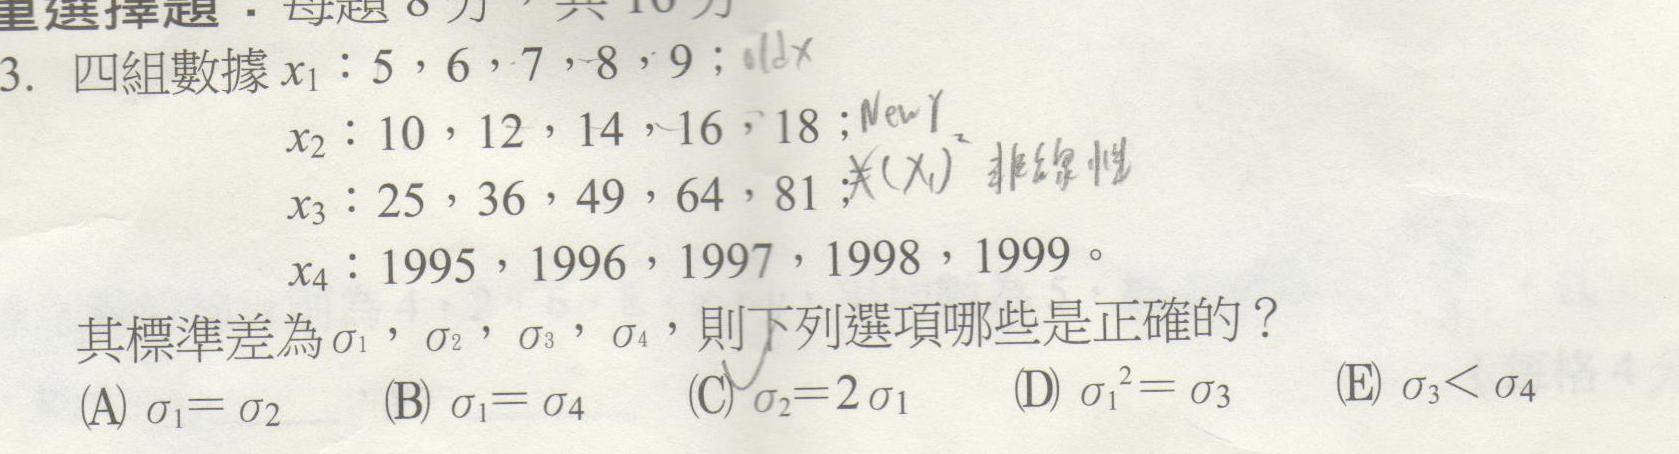 重選擇題：每題 8 分，共 16 分
3. 四組數據 x₁：5，6，7，8，9；old x
x₂：10，12，14，16，18；New Y
x₃：25，36，49，64，81；(X₁)² 非線性
x₄：1995，1996，1997，1998，1999。
其標準差為 σ₁，σ₂，σ₃，σ₄，則下列選項哪些是正確的？
(A) σ₁＝σ₂ (B) σ₁＝σ₄ (C) σ₂＝2σ₁ (D) σ₁²＝σ₃ (E) σ₃＜σ₄